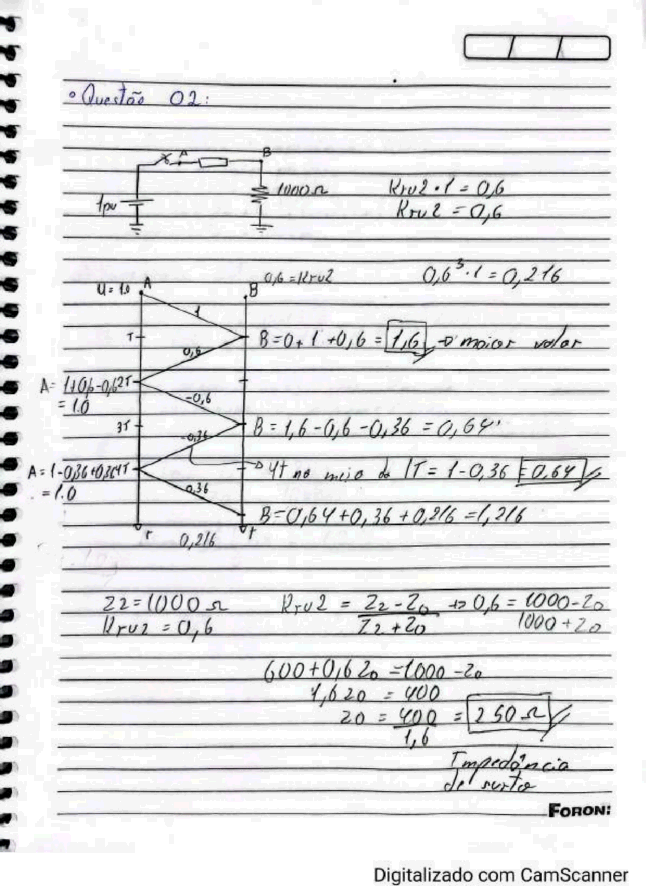 ° Questão 02:
A B
1pu
1000Ω
Kru2 · 1 = 0,6
Kru2 = 0,6
U = 1.0 A B 0,6 = Kru2 0,6³ · 1 = 0,216
1
T B = 0 + 1 + 0,6 = 1,6 → maior valor
0,6
A = 1+0,6-0,6 2T
= 1.0
-0,6
3T B = 1,6 - 0,6 - 0,36 = 0,64
-0,36
A = 1-0,36+0,36 4T → 4T no meio de LT = 1 - 0,36 = 0,64
= 1.0
0,36
B = 0,64 + 0,36 + 0,216 = 1,216
t t
0,216
Z2 = 1000 Ω Kru2 = Z2 - Z0 / Z2 + Z0 → 0,6 = 1000 - Z0 / 1000 + Z0
Kru2 = 0,6
600 + 0,6 Z0 = 1000 - Z0
1,6 Z0 = 400
Z0 = 400 / 1,6 = 250 Ω
Impedância
de surto
FORONI
Digitalizado com CamScanner